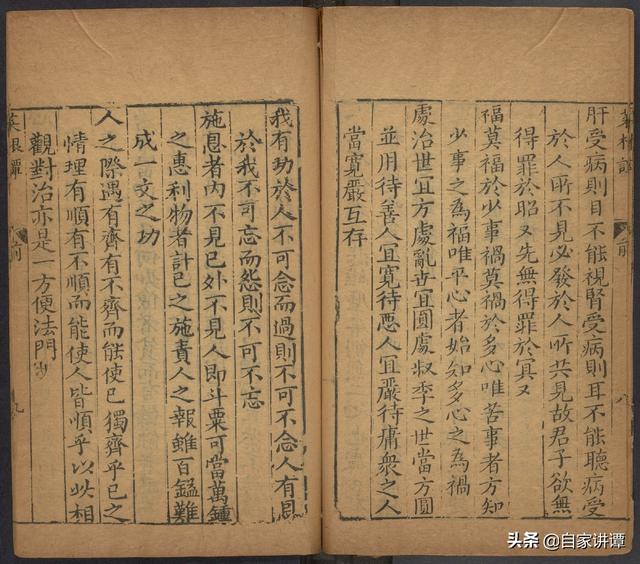 菜根譚
前
八
肝受病則目不能視腎受病則耳不能聽病受
於人所不見必發於人所共見故君子欲無
得罪於昭又先無得罪於冥又
福莫福於少事禍莫禍於多心唯苦事者方知
少事之為福唯平心者始知多心之為禍
處治世宜方處亂世宜圓處叔季之世當方圓
並用待善人宜寬待惡人宜嚴待庸衆之人
當寬嚴互存
我有功於人不可念而過則不可不念人有恩
於我不可忘而怨則不可不忘
施恩者內不見己外不見人即斗粟可當萬鍾
之惠利物者計己之施責人之報雖百鎰難
成一文之功
人之際遇有齊有不齊而能使己獨齊乎己之
情理有順有不順而能使人皆順乎以此相
觀對治亦是一方便法門
菜根譚
前
九
头条 @自家讲谭